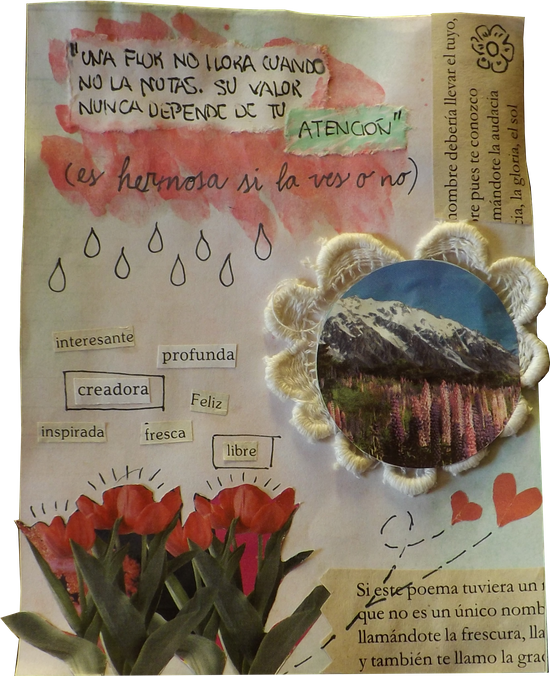 "UNA FLOR NO LLORA CUANDO
NO LA NOTAS. SU VALOR
NUNCA DEPENDE DE TU
ATENCIÓN"
(es hermosa si la ves o no)
nombre debería llevar el tuyo,
re pues te conozco
mándote la audacia
cia, la gloria, el sol
interesante
profunda
creadora
Feliz
inspirada
fresca
libre
Si este poema tuviera un
que no es un único nomb
llamándote la frescura, lla
y también te llamo la grac